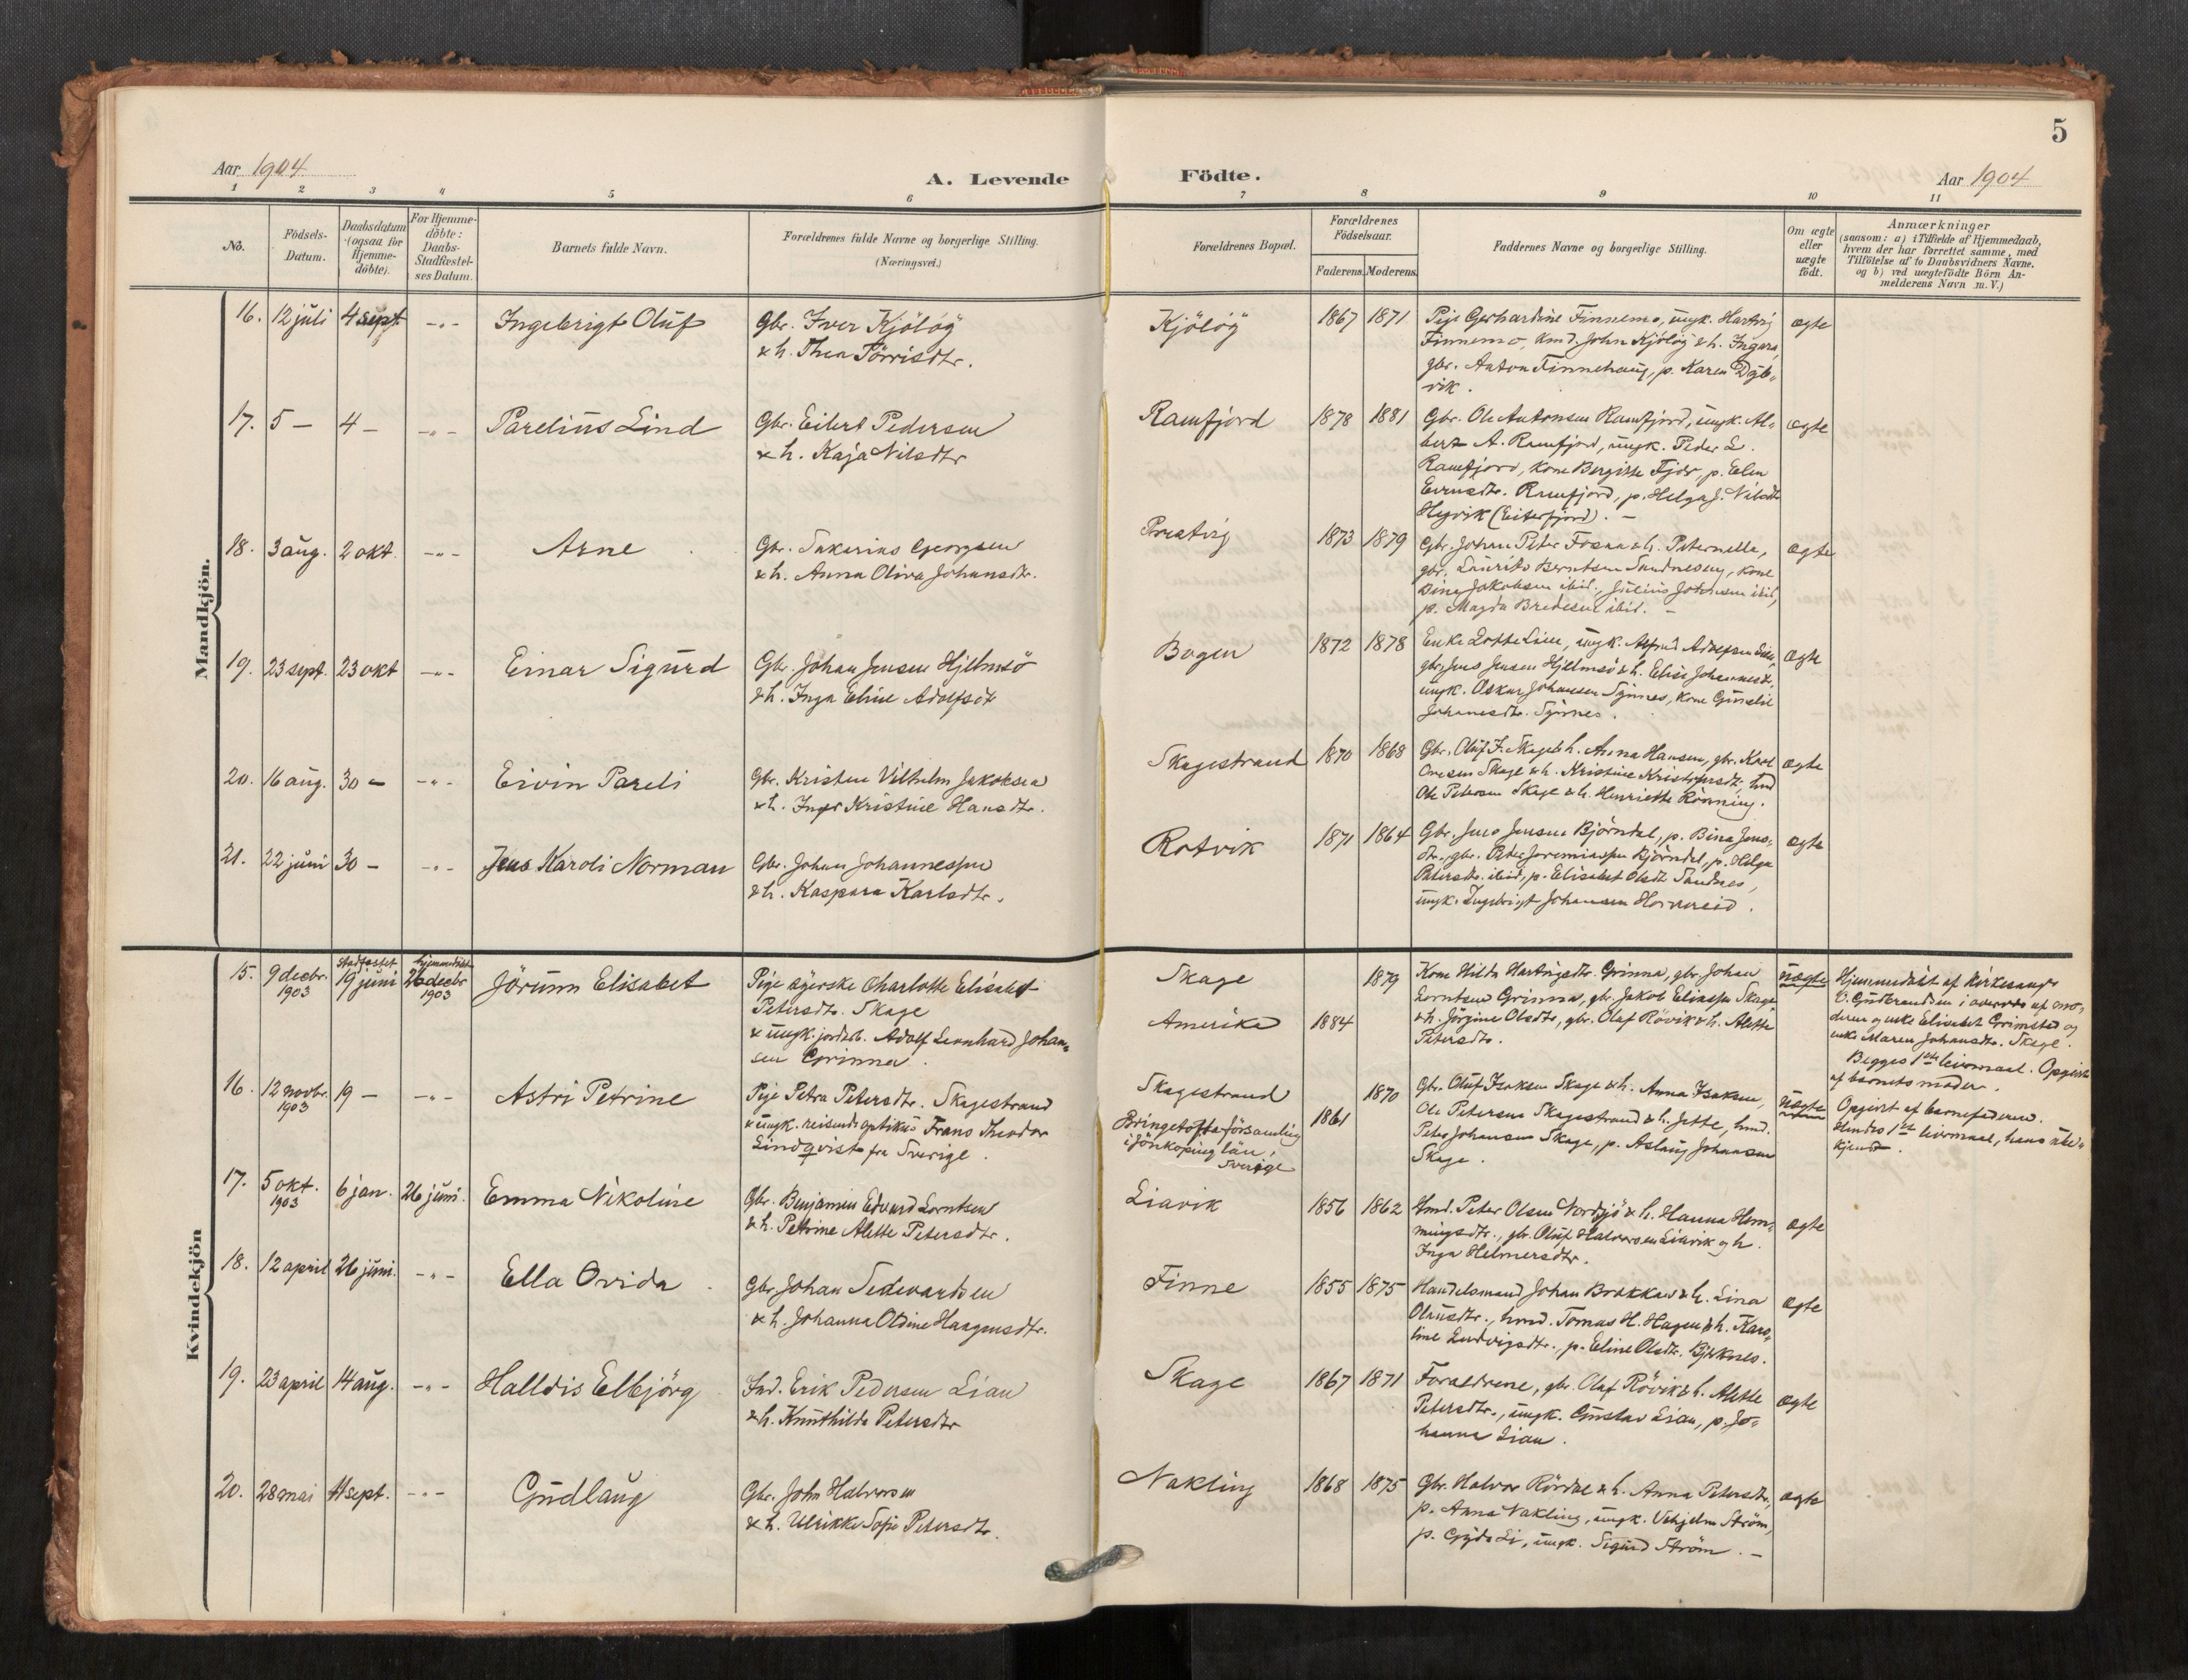 5
Aar 1904
A. Levende Födte.
Aar 1904
1 2 3 4 5 6 7 8 9 10 11
No.
Födsels-Datum.
Daabsdatum (ogsaa for Hjemme-döbte).
For Hjemme-döbte: Daabs-Stadfæstel-ses Datum.
Barnets fulde Navn.
Forældrenes fulde Navne og borgerlige Stilling.
(Næringsvei.)
Forældrenes Bopæl.
Forældrenes Födselsaar.
Faderens. Moderens.
Faddernes Navne og borgerlige Stilling.
Om ægte eller uægte födt.
Anmærkninger
(saasom: a) i Tilfælde af Hjemmedaab,
hvem der har forrettet samme, med
Tilföielse af to Daabsvidners Navne.
og b) ved uægtefödte Börn An-
melderens Navn m. V.)
Mandkjön.
16. 12 juli 4 sept. -"- Ingebrigt Oluf
Gbr. Iver Kjölög
& h. Thea Törrisdtr.
Kjölög 1867 1871
Pige Gerhardine Finnemo, ungk. Hartvig
Finnemo, kmd. John Kjölög & h. Ingara,
gbr. Anton Finnehaug, p. Karen Dyb-
vik.
ægte
17. 5 - 4 - -"- Parelius Lind
Gbr. Eilert Pedersen
& h. Kaja Nilsdtr
Ramfjord 1878 1881
Gbr. Ole Antonsen Ramfjord, ungk. Al-
bert A. Ramfjord, ungk. Peder L.
Ramfjord, kone Bergitte Fjær, p. Elen
Evensdtr. Ramfjord, p. Helga J. Nilsdtr
Høyvik (Eiterfjord). -
ægte
18. 3 aug. 2 okt. -"- Arne
Gbr. Sakarias Georgsen
& h. Anna Oliva Johansdtr.
Prestvig 1873 1879
Gbr. Johan Peter Fosaa & h. Peternella,
gbr. Laurits Berntsen Sandneseng, kone
Dina Jakobsen ibid., Julius Johnsen ibid,
p. Magda Bredesen ibid. -
ægte
19. 23 sept. 23 okt -"- Einar Sigurd
Gbr. Johan Jensen Hjelmsö
& h. Inga Eline Adolfsdt
Bogen 1872 1878
Enke Lotte Lien, ungk. Alfred Adolfsen Lien,
gbr. Jens Jensen Hjelmsö & h. Elise Johannesdt.
ungk. Oskar Johansen Synnes, kone Gunelie
Johannesdtr. Synnes.
ægte
20. 16 aug. 30 - -"- Eivin Pareli
Gbr. Kristen Vilhelm Jakobsen
& h. Inger Kristine Hansdtr.
Skagestrand 1870 1868
Gbr. Oluf I. Skage & h. Anna Hansen, gbr. Karl
Ovesen Skage & h. Kristine Kristofersdt, hmd
Ole Petersen Skage & h. Henriette Rönning.
ægte
21. 22 juni 30 - -"- Jens Karoli Norman
Gbr. Johan Johannessen
& h. Kaspara Karlsdtr.
Rotvik 1871 1864
Gbr. Jens Jensen Björndal, p. Bina Jens-
dtr., gbr. Peder Jeremiassen Björndal, p. Helga
Petersdtr. ibid, p. Elisabet Olsdtr Sandnes,
ungk. Ingebrigt Johansen Horvereid.
ægte
Kvindekjön
15. 9 decbr. 1903 stadfæstet 19 juni hjemmedöbt 26 decbr 1903 Jörunn Elisabet
Pige syerske Charlotte Elisabet
Petersdtr. Skage
& ungk. jordarb. Adolf Leonhard Johan-
sen Grinna.
Skage 1879
Amerika 1884
Kone Hilda Hartvigsdtr. Grinna, gbr. Johan
Lorntsen Grinna, gbr. Jakob Eliassen Skage
& h. Jörgine Olsdtr, gbr. Olaf Rövik & h. Alette
Petersdtr.
uægte
Hjemmedöbt af Kirkesanger
O. Gudbrandsen i overvær af mo-
deren og enke Elisabet Grimstad og
enke Maren Johansdtr. Skage.
Begges 1ste leiermaal. Opgivet
af barnets moder.
16. 12 novbr. 1903 19 - -"- Astri Petrine
Pige Petra Petersdtr. Skagestrand
& ungk. reisende optikus Frans Theodor
Lindqvist fra Sverige.
Skagestrand 1870
Bringetofta församling
i Jönköping län,
Sverige 1861
Gbr. Oluf Isaksen Skage & h. Anna Isaksen,
Ole Petersen Skagestrand & h. Jette, hmd.
Peter Johansen Skage, p. Aslaug Johansen
Skage.
uægte
Opgivet af barnefaderen.
Hendes 1ste leiermaal, hans ube-
kjendt.
17. 5 okt. 1903 6 jan. 26 juni. Emma Nikoline
Gbr. Benjamin Edvard Lorntsen
& h. Petrine Alette Petersdtr.
Liavik 1856 1862
Hmd. Peter Olsen Nordsjö & h. Hanna Hem-
mingsdtr., gbr. Oluf Halvorsen Liavik og h.
Inga Helmersdtr.
ægte
18. 12 april 26 juni. -"- Ella Ovida
Gbr. Johan Sedevardsen
& h. Johanna Oldine Haagensdtr.
Finne 1855 1875
Handelsmand Johan Brakkan & h. Lina
Olausdtr., hmd. Tomas H. Hagen & h. Karo-
line Ludvigsdtr., p. Eline Olsdtr. Bjerknes.
ægte
19. 23 april 14 aug. -"- Halldis Elbjörg
Ind. Erik Pedersen Lian
& h. Knuthilda Petersdtr
Skage 1867 1871
Forældrene, gbr. Olaf Rövik & h. Alette
Petersdtr., ungk. Gustav Lian, p. Jo-
hanna Lian.
ægte
20. 28 mai 11 sept. -"- Gudlaug
Gbr. John Halvorsen
& h. Ulrikke Sofie Petersdtr.
Nakling 1868 1875
Gbr. Halvor Rördal & h. Anna Petersdtr,
p. Anna Nakling, ungk. Vehjelm Ström,
p. Gyda Li, ungk. Sigurd Ström. -
ægte